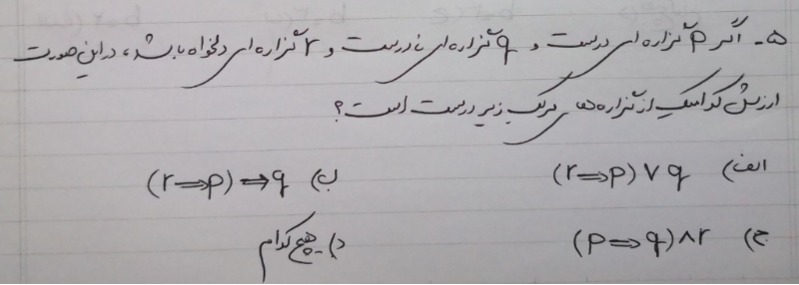 ۵- اگر p گزاره ای درست و q گزاره ای نادرست و r گزاره ای دلخواه باشد، در این صورت
ارزش کدامیک از گزاره های مرکب زیر درست است؟
الف) (r⇒p) ∨ q ب) (r⇒p) ⇒ q
ج) (p⇒q) ∧ r د) هیچ کدام